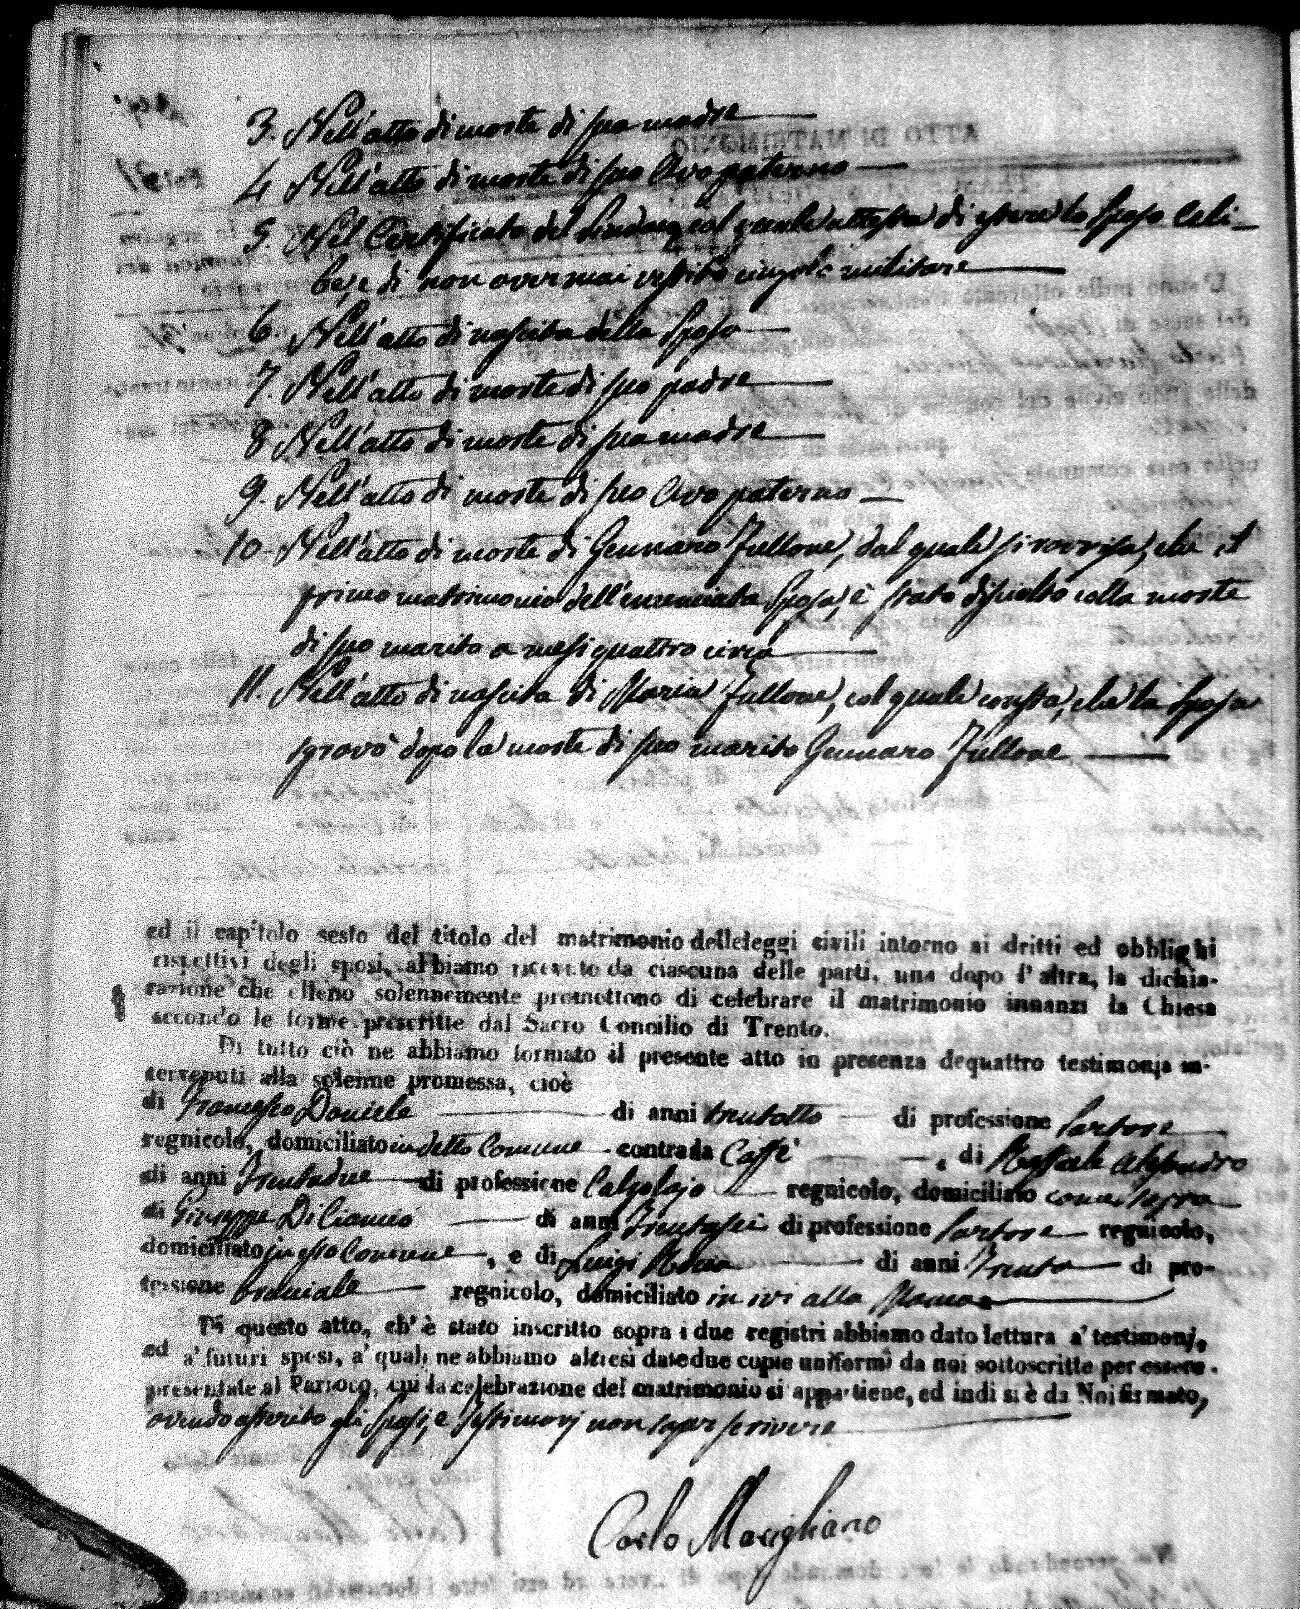 3. Nell'atto di morte di sua madre
4. Nell'atto di morte di suo Avo paterno
5. Nel Certificato del Sindaco col quale attesta di essere lo Sposo Celi-
be, e di non aver mai vestito cingolo militare
6. Nell'atto di nascita della Sposa
7. Nell'atto di morte di suo padre
8. Nell'atto di morte di sua madre
9. Nell'atto di morte di suo Avo paterno
10. Nell'atto di morte di Gennaro Fullone, dal quale si rovvisa, che il
primo matrimonio dell'enunciata Sposa, è stato disciolto colla morte
di suo marito a mesi quattro circa
11. Nell'atto di nascita di Maria Fullone, col quale consta, che la Sposa
sgravò dopo la morte di suo marito Gennaro Fullone
ed il capitolo sesto del titolo del matrimonio delleleggi civili intorno ai dritti ed obblighi
rispettivi degli sposi, abbiamo ricevuto da ciascuna delle parti, una dopo l'altra, la dichia-
razione che elleno solennemente promettono di celebrare il matrimonio innanzi la Chiesa
secondo le forme prescritte dal Sacro Concilio di Trento.
Di tutto ciò ne abbiamo formato il presente atto in presenza dequattro testimonj in-
tervenuti alla solenne promessa, cioè
di Francesco Daniele di anni trentotto di professione Sartore
regnicolo, domiciliato in detto Comune contrada Caffè, di Raffaele
di anni Trentadue di professione Calzolajo regnicolo, domiciliato come sopra
di Giuseppe Di Cianno di anni Trentasei di professione Sartore regnicolo,
domiciliato in esso Comune, e di Luigi di anni Trenta di pro-
fessione Bracciale regnicolo, domiciliato in ivi alla
Di questo atto, ch'è stato inscritto sopra i due registri abbiamo dato lettura a' testimonj,
ed a' futuri sposi, a' quali ne abbiamo altresì date due copie uniformi da noi sottoscritte per essere
presentate al Parroco, cui la celebrazione del matrimonio si appartiene, ed indi si è da Noi firmato,
avendo asserito gli Sposi, e Testimonj non saper scrivere
Carlo Marigliano